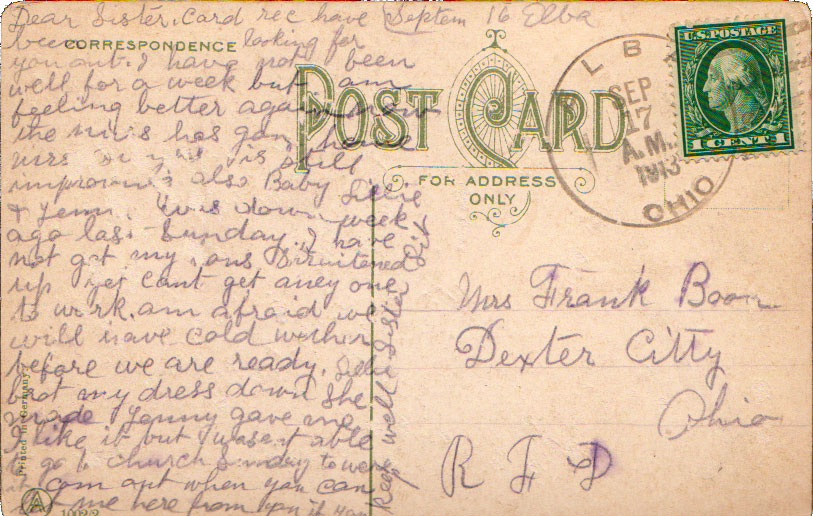 Dear Sister. Card rec have
Septem 16 Elba
been looking for
CORRESPONDENCE
you out. I have not been
well for a week but I am
feeling better again now
the nurs has gon home
mrs is still
improving also Baby Lillie
& Jenn. was down week
ago last Sunday. I have
not got my ons
up yet cant get aney one
to work. am afraid we
will have cold wether
before we are ready. Lillie
brot my dress down she
made Jenny gave me
I like it but I wasent able
to go to church Sunday to were
it com out when you can
me here from you if you
keep well Sister Lib
POST CARD
FOR ADDRESS
ONLY
ELBA
SEP
17
A.M.
1913
OHIO
U.S. POSTAGE
1 CENT 1
Mrs Frank Boon
Dexter Citty
Ohio
R F D
Printed in Germany
A
1002/2